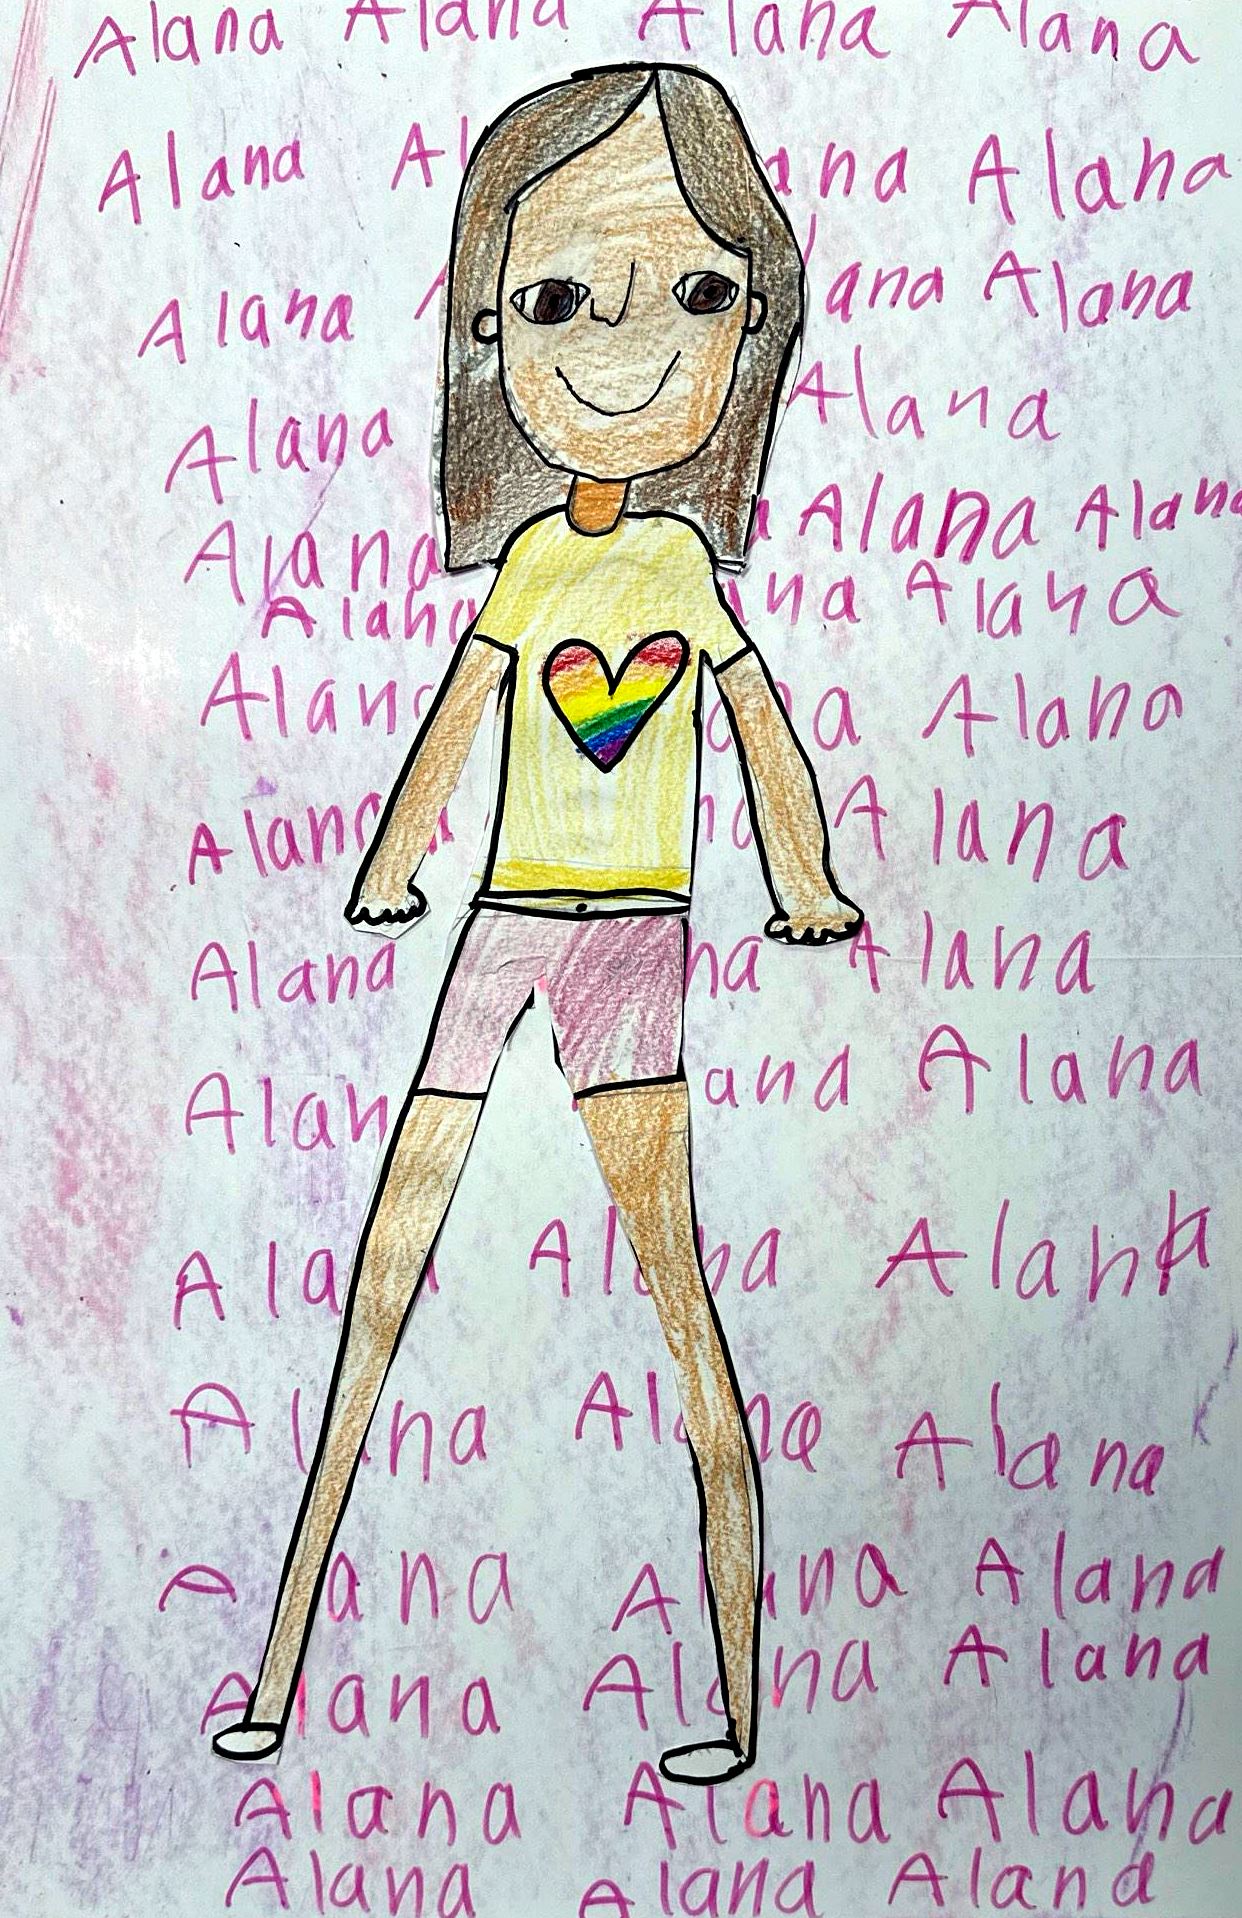 Alana Alana Alana Alana
Alana Al ana Alana
Alana ana Alana
Alana Alana
Alana a Alana Alana
Alana na Alana
Alana a Alana
Alana na Alana
Alana na Alana
Alan and Alana
Ala Al na Alana
Al na Al na Alana
A ana Al na Alana
Alana Al na Alana
Alana Alana Alana
Alana Alana Alana